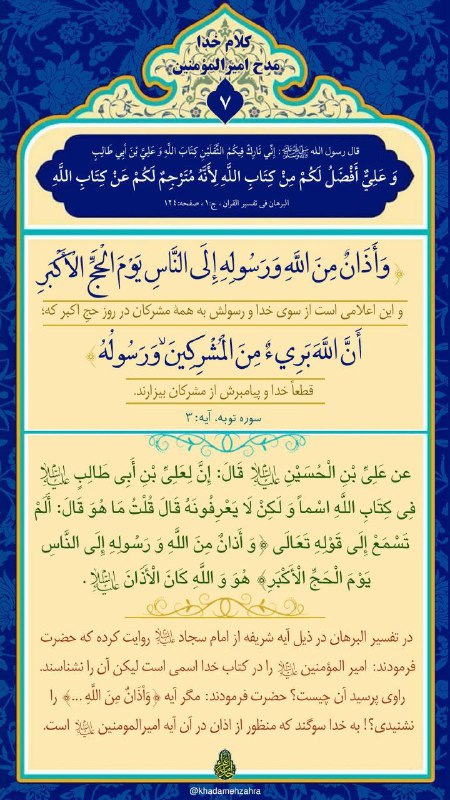 کلام خدا
مدح امیرالمؤمنین
۷
قال رسول الله ﷺ : إنّي تَارِكٌ فِيكُمُ الثَّقَلَيْنِ كِتَابَ اللَّهِ وَ عَلِيَّ بْنَ أَبِي طَالِبٍ
وَ عَلِيٌّ أَفْضَلُ لَكُمْ مِنْ كِتَابِ اللَّهِ لِأَنَّهُ مُتَرْجِمٌ لَكُمْ عَنْ كِتَابِ اللَّهِ
البرهان فی تفسیر القران ، ج:۱ ، صفحه:۱۲۴
﴿ وَأَذَانٌ مِنَ اللَّهِ وَرَسُولِهِ إِلَى النَّاسِ يَوْمَ الْحَجِّ الْأَكْبَرِ
و این اعلامی است از سوی خدا و رسولش به همهٔ مشرکان در روز حج اکبر که؛
أَنَّ اللَّهَ بَرِيءٌ مِنَ الْمُشْرِكِينَ ۙ وَرَسُولُهُ ﴾
قطعاً خدا و پیامبرش از مشرکان بیزارند.
سوره توبه، آیه: ۳
عن عَلِيِّ بْنِ الْحُسَيْنِ علیه‌السلام قَالَ: إِنَّ لِعَلِيِّ بْنِ أَبِي طَالِبٍ علیه‌السلام
فِي كِتَابِ اللَّهِ اسْماً وَ لَكِنْ لَا يَعْرِفُونَهُ قَالَ قُلْتُ مَا هُوَ قَالَ: أَلَمْ
تَسْمَعْ إِلَى قَوْلِهِ تَعَالَى ﴿وَ أَذانٌ مِنَ اللَّهِ وَ رَسُولِهِ إِلَى النَّاسِ
يَوْمَ الْحَجِّ الْأَكْبَرِ﴾ هُوَ وَ اللَّهِ كَانَ الْأَذَانَ علیه‌السلام .
در تفسیر البرهان در ذیل آیه شریفه از امام سجاد علیه‌السلام روایت کرده که حضرت
فرمودند: امیر المؤمنین علیه‌السلام را در کتاب خدا اسمی است لیکن آن را نشناسند.
راوی پرسید آن چیست؟ حضرت فرمودند: مگر آیه ﴿وَأَذَانٌ مِنَ اللَّهِ ...﴾ را
نشنیدی؟! به خدا سوگند که منظور از اذان در آن آیه امیرالمومنین علیه‌السلام است.
@khadamehzahra